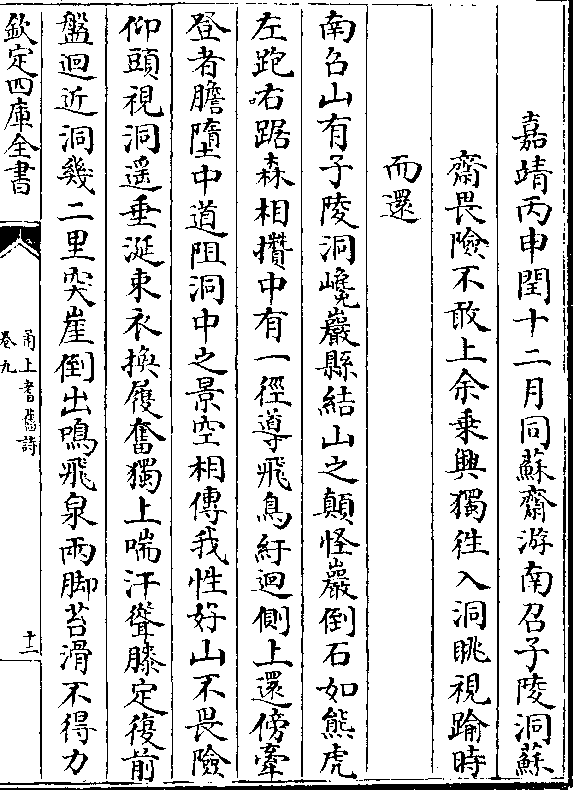 嘉靖丙申閏十二月同蘇齋游南召子陵洞蘇
齋畏險不敢上余乗興獨徃入洞眺視踰時
而還
南召山有子陵洞巉巖縣結山之顛怪巖倒石如熊虎
左跑右踞森相攢中有一徑導飛鳥紆迴側上還傍牽
登者膽墮中道阻洞中之景空相傳我性好山不畏險
仰頭視洞遥垂涎束衣換履奮獨上喘汗聳膝定復前
盤迴近洞幾二里突崖倒出鳴飛泉兩脚苔滑不得力
欽定四庫全書
甬上耆舊詩
卷九
十二